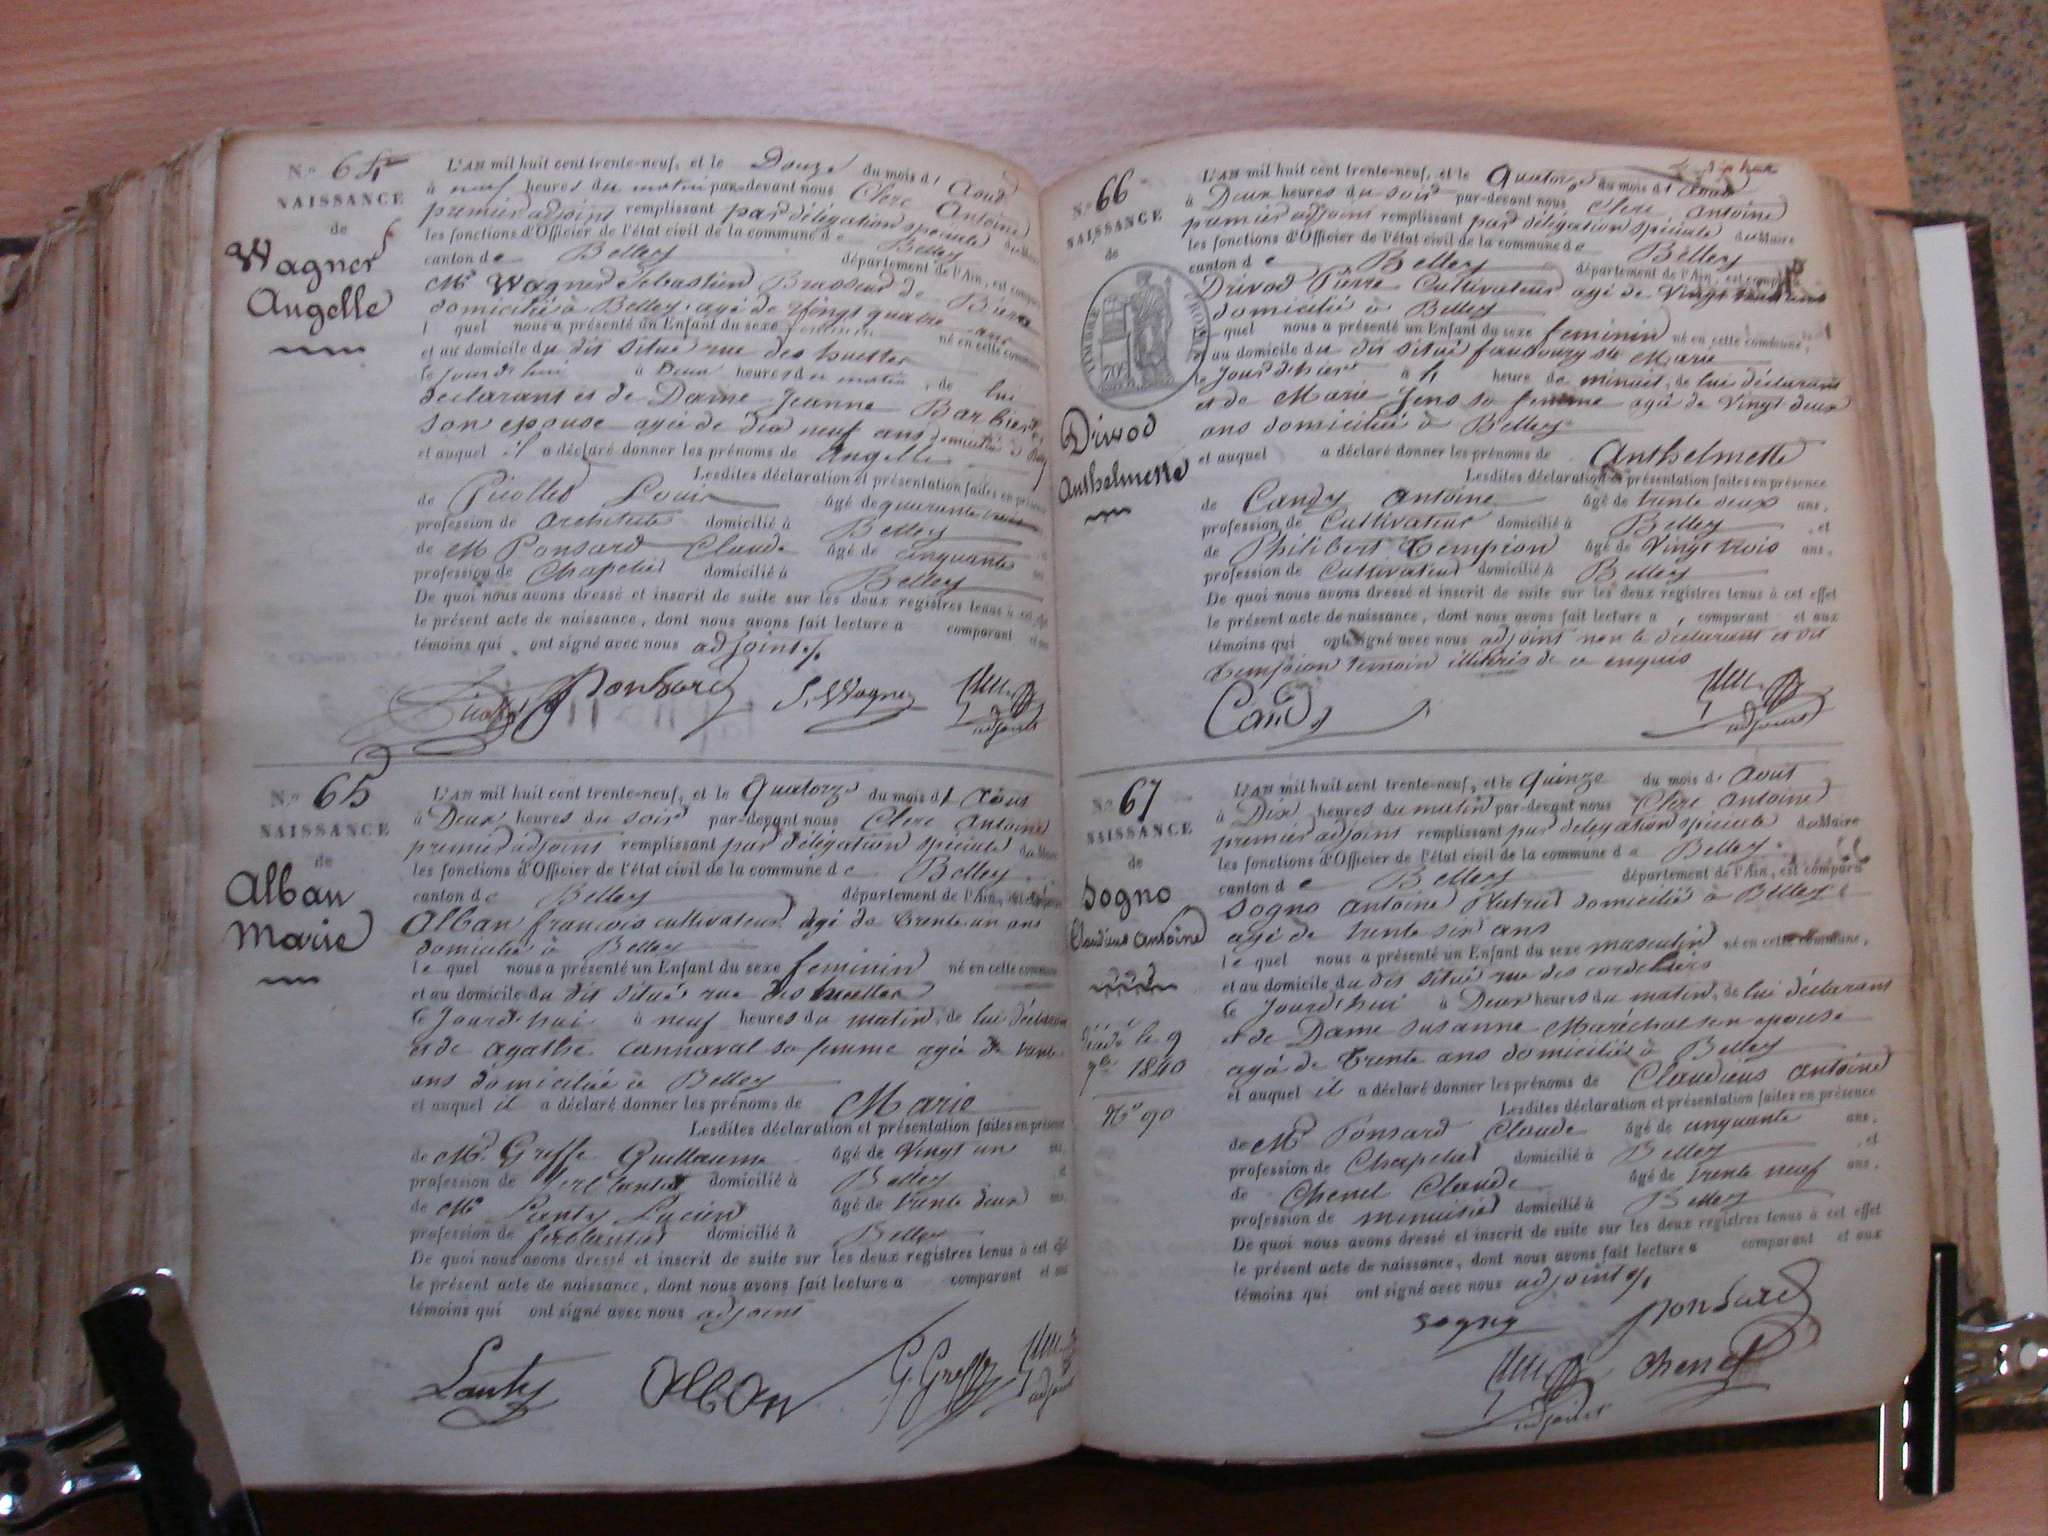 N.º 64
NAISSANCE
de
Wagner
Angelle
L'AN mil huit cent trente-neuf, et le Douze du mois d'Aout
à neuf heures du matin par-devant nous Clerc Antoine
premier adjoint remplissant par délégation spéciale du Maire
les fonctions d'Officier de l'état civil de la commune de Belley
canton de Belley département de l'Ain, est comparu
Mr Wagner Sebastien Brasseur de Bière
domicilié à Belley agé de Vingt quatre ans
l quel nous a présenté un Enfant du sexe feminin né en cette commune
et au domicile du dit situé rue des huelles
le jourd'hui à Deux heures du matin, de lui
déclarant et de Dame Jeanne Barbier
son epouse agée de dix neuf ans domiciliée à Belley
et auquel il a déclaré donner les prénoms de Angelle
Lesdites déclaration et présentation faites en présence
de Picollet Louis âgé de quarante trois
profession de architecte domicilié à Belley
de M Ponsard Claude âgé de cinquante ans
profession de Chapelier domicilié à Belley
De quoi nous avons dressé et inscrit de suite sur les deux registres tenus à cet effet
le présent acte de naissance, dont nous avons fait lecture a comparant et aux
témoins qui ont signé avec nous adjoint
Ponsard S. Wagner
adjoint
N.º 65
NAISSANCE
de
Alban
Marie
L'AN mil huit cent trente-neuf, et le Quatorze du mois d'Aout
à Deux heures du soir par-devant nous Clerc Antoine
premier adjoint remplissant par délégation spéciale du Maire
les fonctions d'Officier de l'état civil de la commune de Belley
canton de Belley département de l'Ain, est comparu
Alban françois cultivateur agé de trente un ans
domicilié à Belley
le quel nous a présenté un Enfant du sexe feminin né en cette commune
et au domicile du dit situé rue des huelles
le Jourd'hui à neuf heures du matin, de lui déclarant
et de agathe Cannaval sa femme agée de trente
ans domiciliée à Belley
et auquel il a déclaré donner les prénoms de Marie
Lesdites déclaration et présentation faites en présence
de Mr Greffe Guillaume âgé de Vingt un ans
profession de ferblantier domicilié à Belley
de Mr Lanty Lucien âgé de trente deux ans
profession de ferblantier domicilié à Belley
De quoi nous avons dressé et inscrit de suite sur les deux registres tenus à cet effet
le présent acte de naissance, dont nous avons fait lecture a comparant et aux
témoins qui ont signé avec nous adjoint
Lanty Alban G. Greffe
adjoint
N.º 66
NAISSANCE
de
TIMBRE ROYAL
70
Drivod
Anthelmette
L'AN mil huit cent trente-neuf, et le Quatorze du mois d'Aout
à Deux heures du soir par-devant nous Clerc Antoine
premier adjoint remplissant par délégation spéciale du Maire
les fonctions d'Officier de l'état civil de la commune de Belley
canton de Belley département de l'Ain, est comparu
Drivod Pierre Cultivateur agé de Vingt ans
domicilié à Belley
quel nous a présenté un Enfant du sexe feminin né en cette commune,
et au domicile du dit situé faubourg ste Marie
le Jour d'hier à heure de minuit, de lui déclarant
et de Marie Jens sa femme agée de Vingt deux
ans domiciliée à Belley
et auquel a déclaré donner les prénoms de Anthelmette
Lesdites déclaration et présentation faites en présence
de Candy Antoine âgé de trente deux ans,
profession de Cultivateur domicilié à Belley, et
de Philibert Tempion âgé de Vingt trois ans,
profession de Cultivateur domicilié à Belley
De quoi nous avons dressé et inscrit de suite sur les deux registres tenus à cet effet
le présent acte de naissance, dont nous avons fait lecture a, comparant et aux
témoins qui ont signé avec nous adjoint non le déclarant et dit
Tempion temoin illitérés de ce enquis
Candy
adjoint
N.º 67
NAISSANCE
de
Sogno
Claudius Antoine
Décédé le 9
7bre 1840
Nº 90
L'AN mil huit cent trente-neuf, et le Quinze du mois d'Aout
à Dix heures du matin par-devant nous Clerc Antoine
premier adjoint remplissant par délégation spéciale du Maire
les fonctions d'Officier de l'état civil de la commune de Belley
canton de Belley département de l'Ain, est comparu
Sogno Antoine Platrier domicilié à Belley
agé de trente six ans
le quel nous a présenté un Enfant du sexe masculin né en cette commune,
et au domicile du dit situé rue des cordeliers
le Jourd'hui à Deux heures du matin, de lui déclarant
et de Dame Susanne Maréchal son epouse
agée de trente ans domiciliée à Belley
et auquel il a déclaré donner les prénoms de Claudius Antoine
Lesdites déclaration et présentation faites en présence
de Mr Ponsard Claude âgé de cinquante ans,
profession de Chapelier domicilié à Belley, et
de Chenel Claude âgé de trente neuf ans,
profession de menuisier domicilié à Belley
De quoi nous avons dressé et inscrit de suite sur les deux registres tenus à cet effet
le présent acte de naissance, dont nous avons fait lecture a comparant et aux
témoins qui ont signé avec nous adjoint
sogny Ponsard
Chenel
adjoint